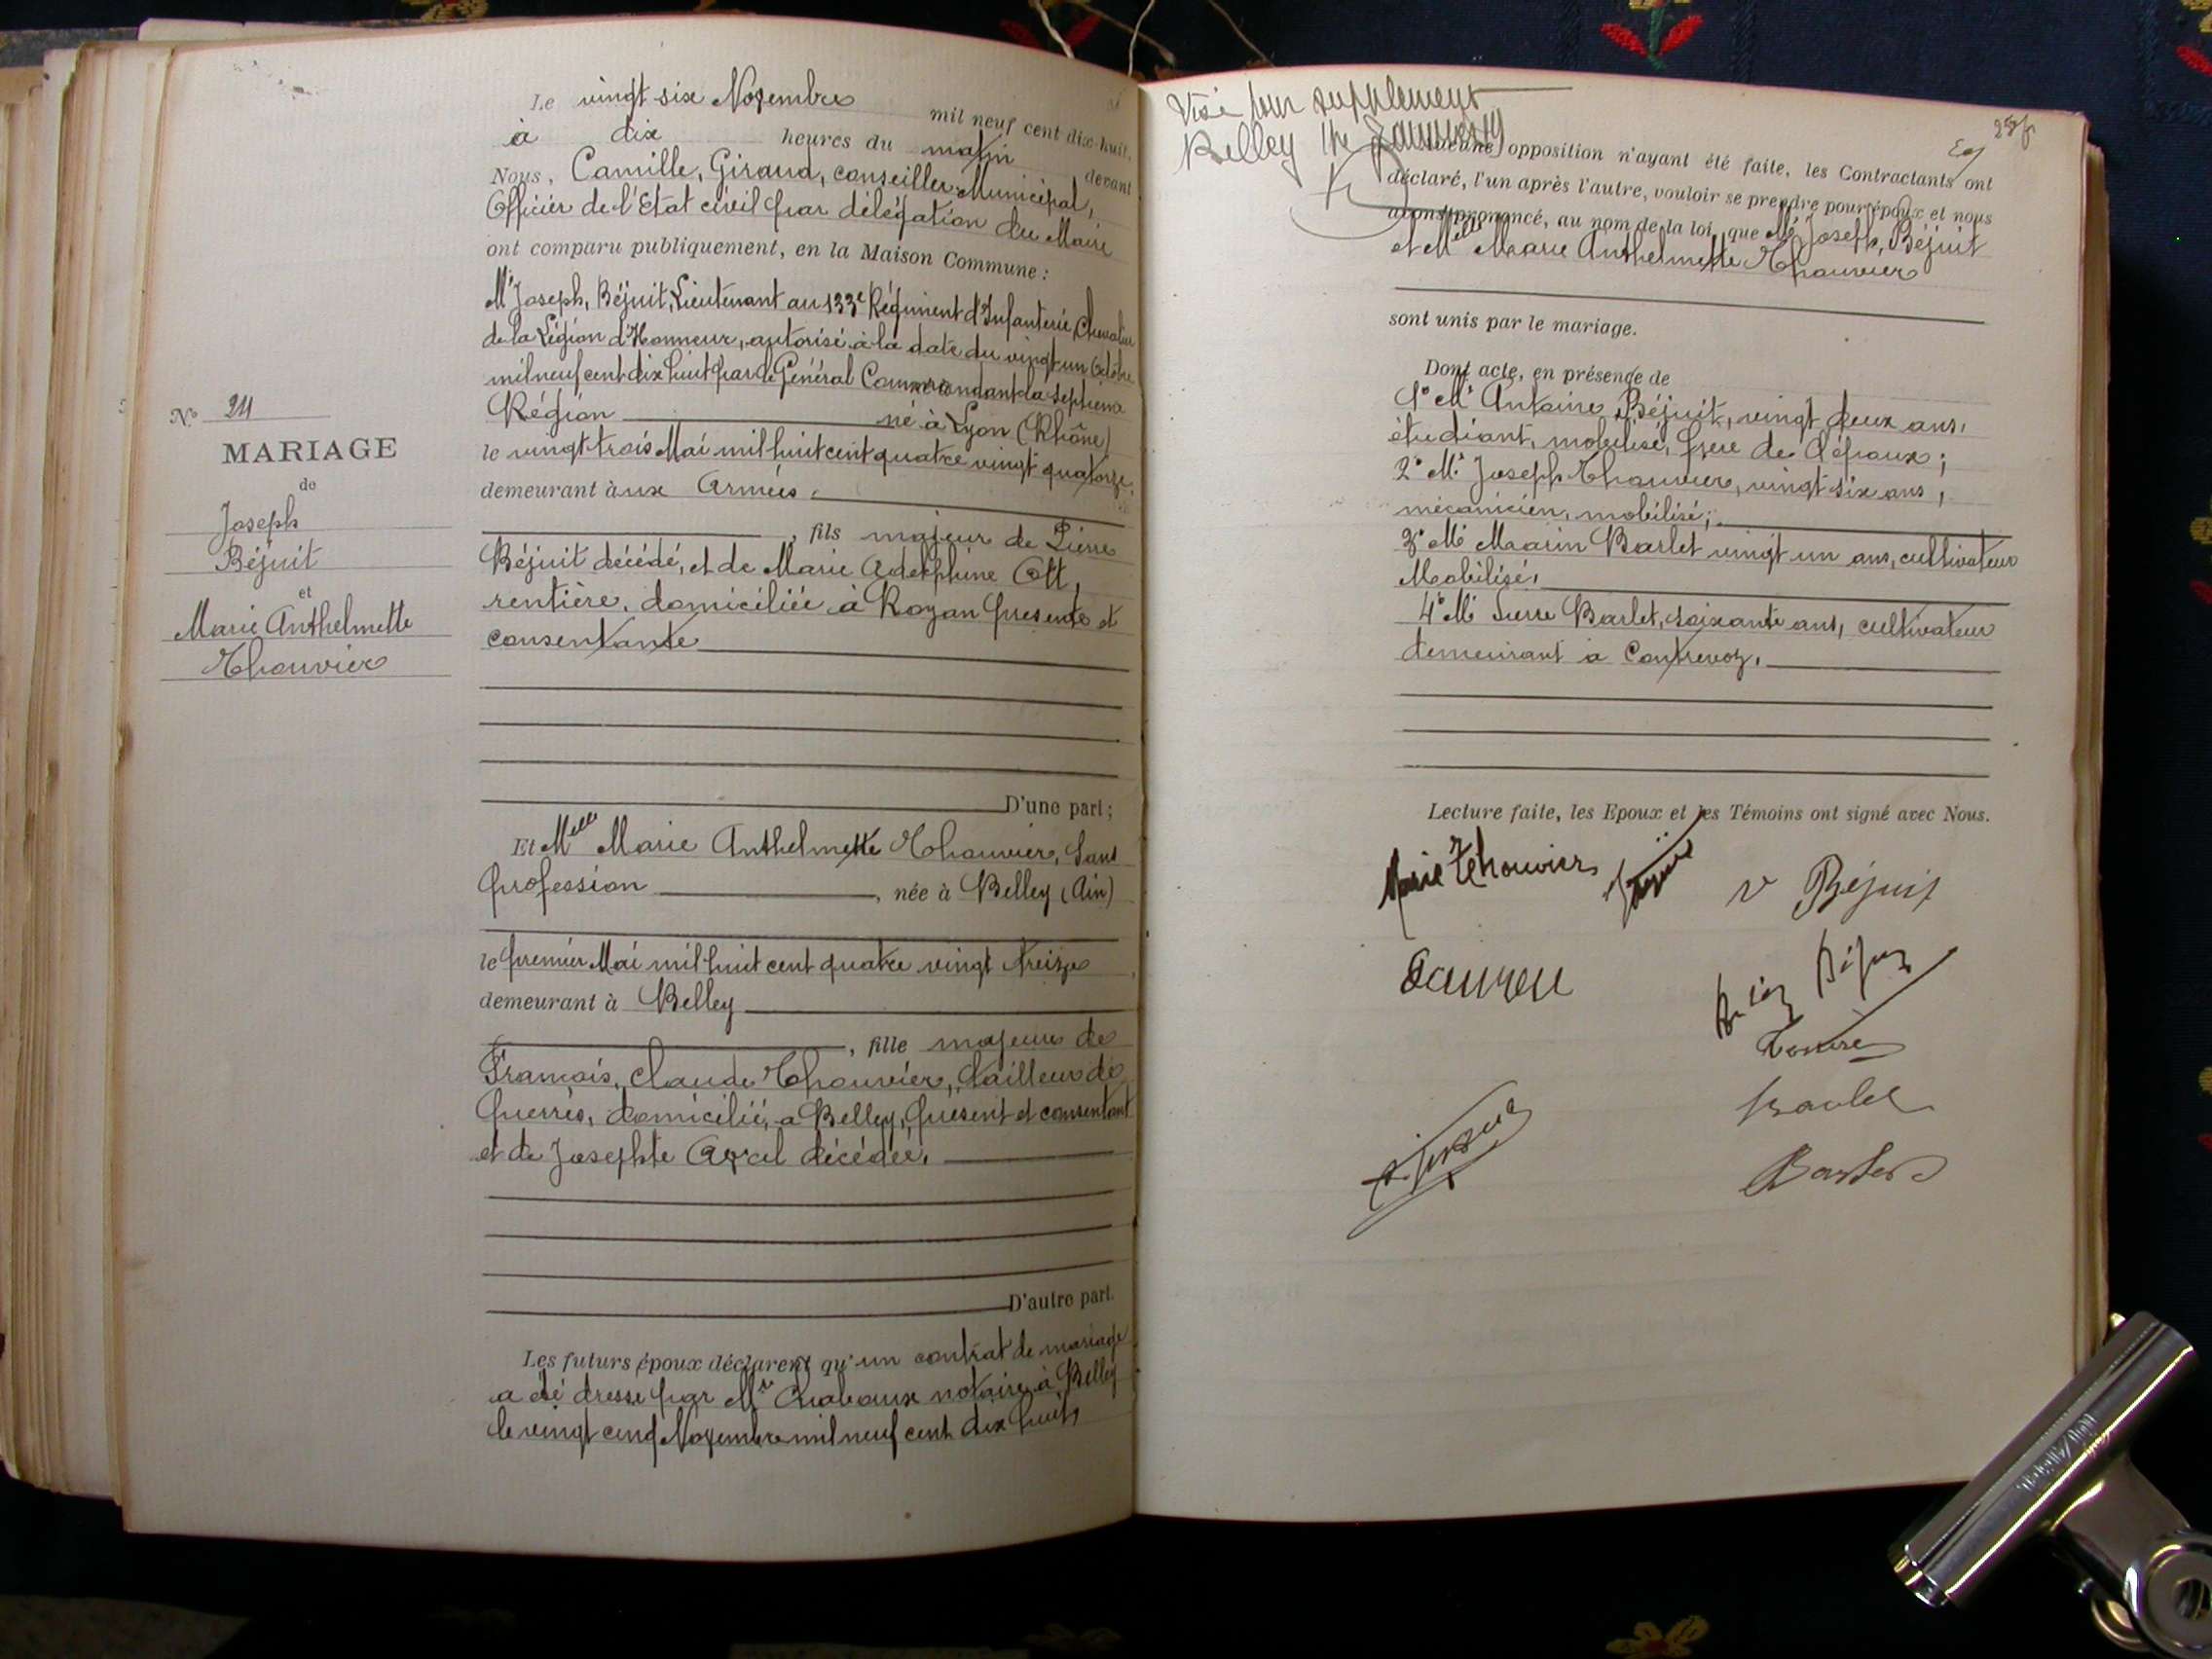 N° 24
MARIAGE
de
Joseph
Béjuit
et
Marie Anthelmette
Thouvier
Le vingt six Novembre mil neuf cent dix-huit,
à dix heures du matin devant
Nous, Camille, Giraud, conseiller Municipal,
Officier de l'Etat civil par délégation du Maire
ont comparu publiquement, en la Maison Commune :
Mr Joseph, Béjuit, Lieutenant au 133e Régiment d'Infanterie, Chevalier
de la Légion d'Honneur, autorisé à la date du vingt un Octobre
mil neuf cent dix huit par le Général Commandant la septième
Région né à Lyon (Rhône)
le vingt trois Mai mil huit cent quatre vingt quatorze.
demeurant à ux Armées.
, fils majeur de Pierre
Béjuit décédé, et de Marie Adelphine Ott,
rentière, domiciliée à Royan présente et
consentante
D'une part;
Et Melle Marie Anthelmette Thouvier, Sans
profession, née à Belley (Ain)
le premier Mai mil huit cent quatre vingt treize
demeurant à Belley
, fille majeure de
François, Claude Thouvier, tailleur de
pierres, domicilié, a Belley, présent et consentant
et de Josephte décédée.
D'autre part.
Les futurs époux déclarent qu'un contrat de mariage
a été dressé par Me notaire à Belley
le vingt cinq Novembre mil neuf cent dix huit,
Visé pour supplement
Belley le
Aucune opposition n'ayant été faite, les Contractants ont
déclaré, l'un après l'autre, vouloir se prendre pour époux et nous
avons prononcé, au nom de la loi, que Mr Joseph, Béjuit
et Melle Marie Anthelmette Thouvier
sont unis par le mariage.
Dont acte, en présence de
1° Mr Antoine Béjuit, vingt deux ans,
étudiant, mobilisé, frère de l'époux;
2° Mr Joseph Thouvier, vingt six ans,
mécanicien, mobilisé;
3° Mr Marin Barlet vingt un ans, cultivateur
Mobilisé.
4° Mr Pierre Barlet, soixante ans, cultivateur
demeurant a Contrevoz.
Lecture faite, les Epoux et les Témoins ont signé avec Nous.
Marie Thouvier
V Béjuit
Barlet